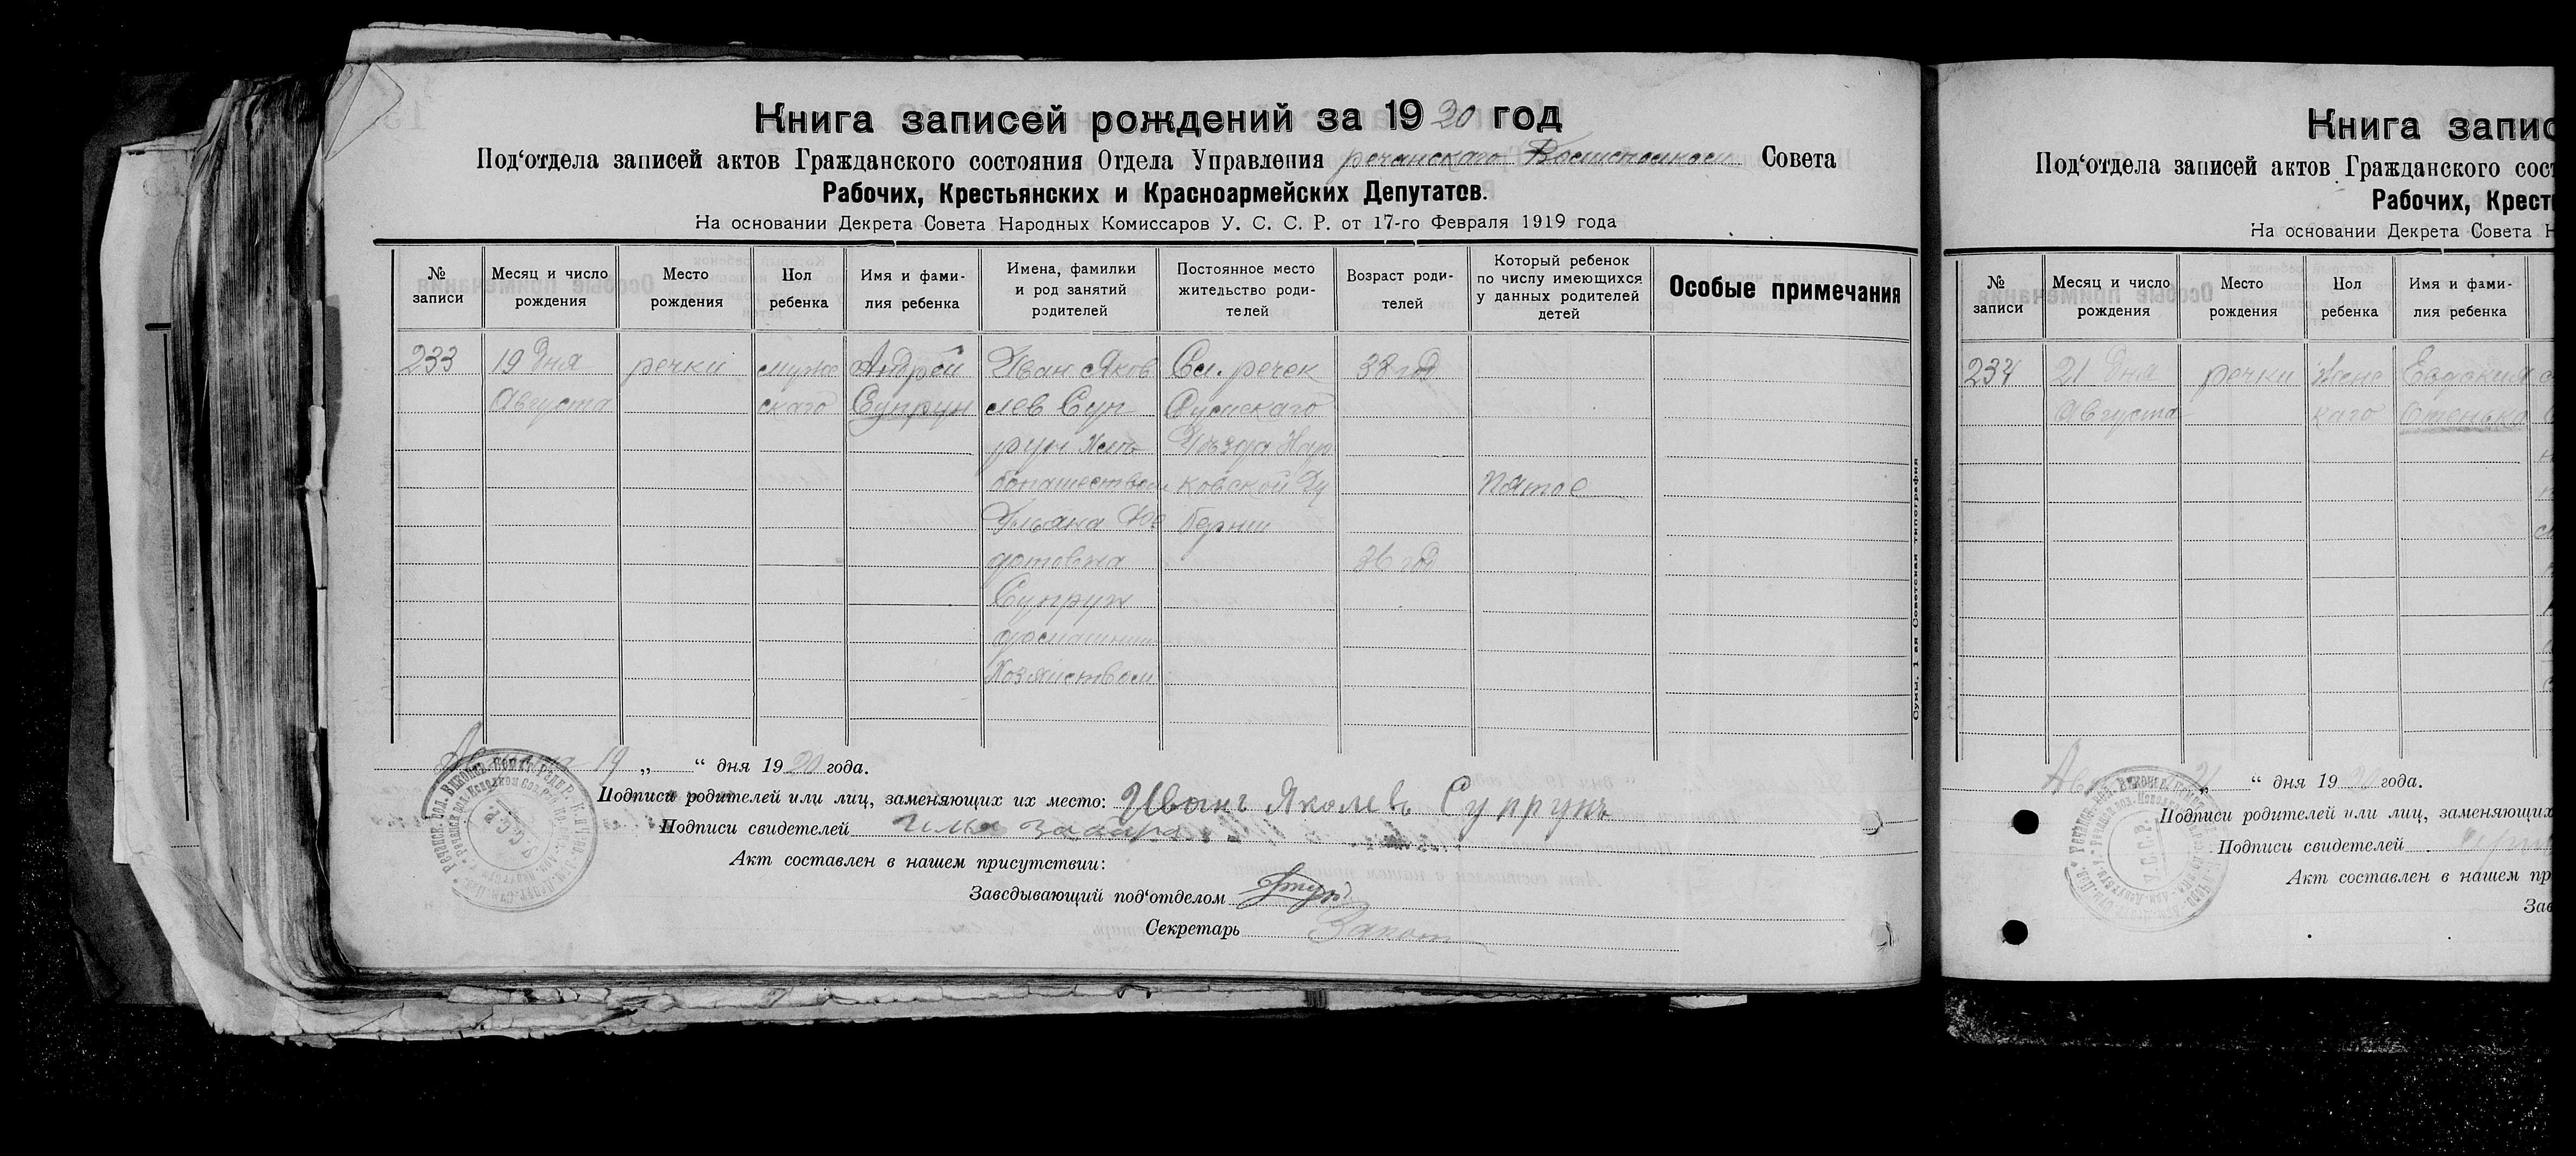 Книга записей рождений за 1920 год
Под‘отдела записей актов Гражданского состояния Отдела Управления речанскаго Совета
Рабочих, Крестьянских и Красноармейских Депутатов.
На основании Декрета Совета Народных Комиссаров У. С. С. Р. от 17-го Февраля 1919 года
№ записи
Месяц и число рождения
Место рождения
Пол ребенка
Имя и фами-
лия ребенка
Имена, фамилии
и род занятий
родителей
Постоянное место
жительство роди-
телей
Возраст роди-
телей
Который ребенок
по числу имеющихся
у данных родителей
детей
Особые примечания
233
19 дня
Августа
речки
муже
скаго
Андрей
Супрун
Иван Яков
лев Суп
рун Хле
бопашеством
Ульяна Фе
дотовна
Супрун
домашним
Хозяйством
Сл. речек
Сумскаго
Уезда Хар
ковской Гу
бернии
38 год
36 год
пятое
Сумы, 1-ая Советская типография
Августа 19 „ “ дня 1920 года.
Подписи родителей или лиц, заменяющих их место: Иванъ Яколевъ Супрунъ
Подписи свидетелей
Акт составлен в нашем присутствии:
Заведывающий под‘отделом
Секретарь
Книга запис
Под‘отдела записей актов Гражданского сост
Рабочих, Крест
На основании Декрета Совета Н
№ записи
Месяц и число рождения
Место рождения
Пол ребенка
Имя и фами-
лия ребенка
234
21 дня
Августа
речки
Женс
каго
Евдокия
“ дня 1920 года.
Подписи родителей или лиц, заменяющих
Подписи свидетелей
Акт составлен в нашем пр
Зав